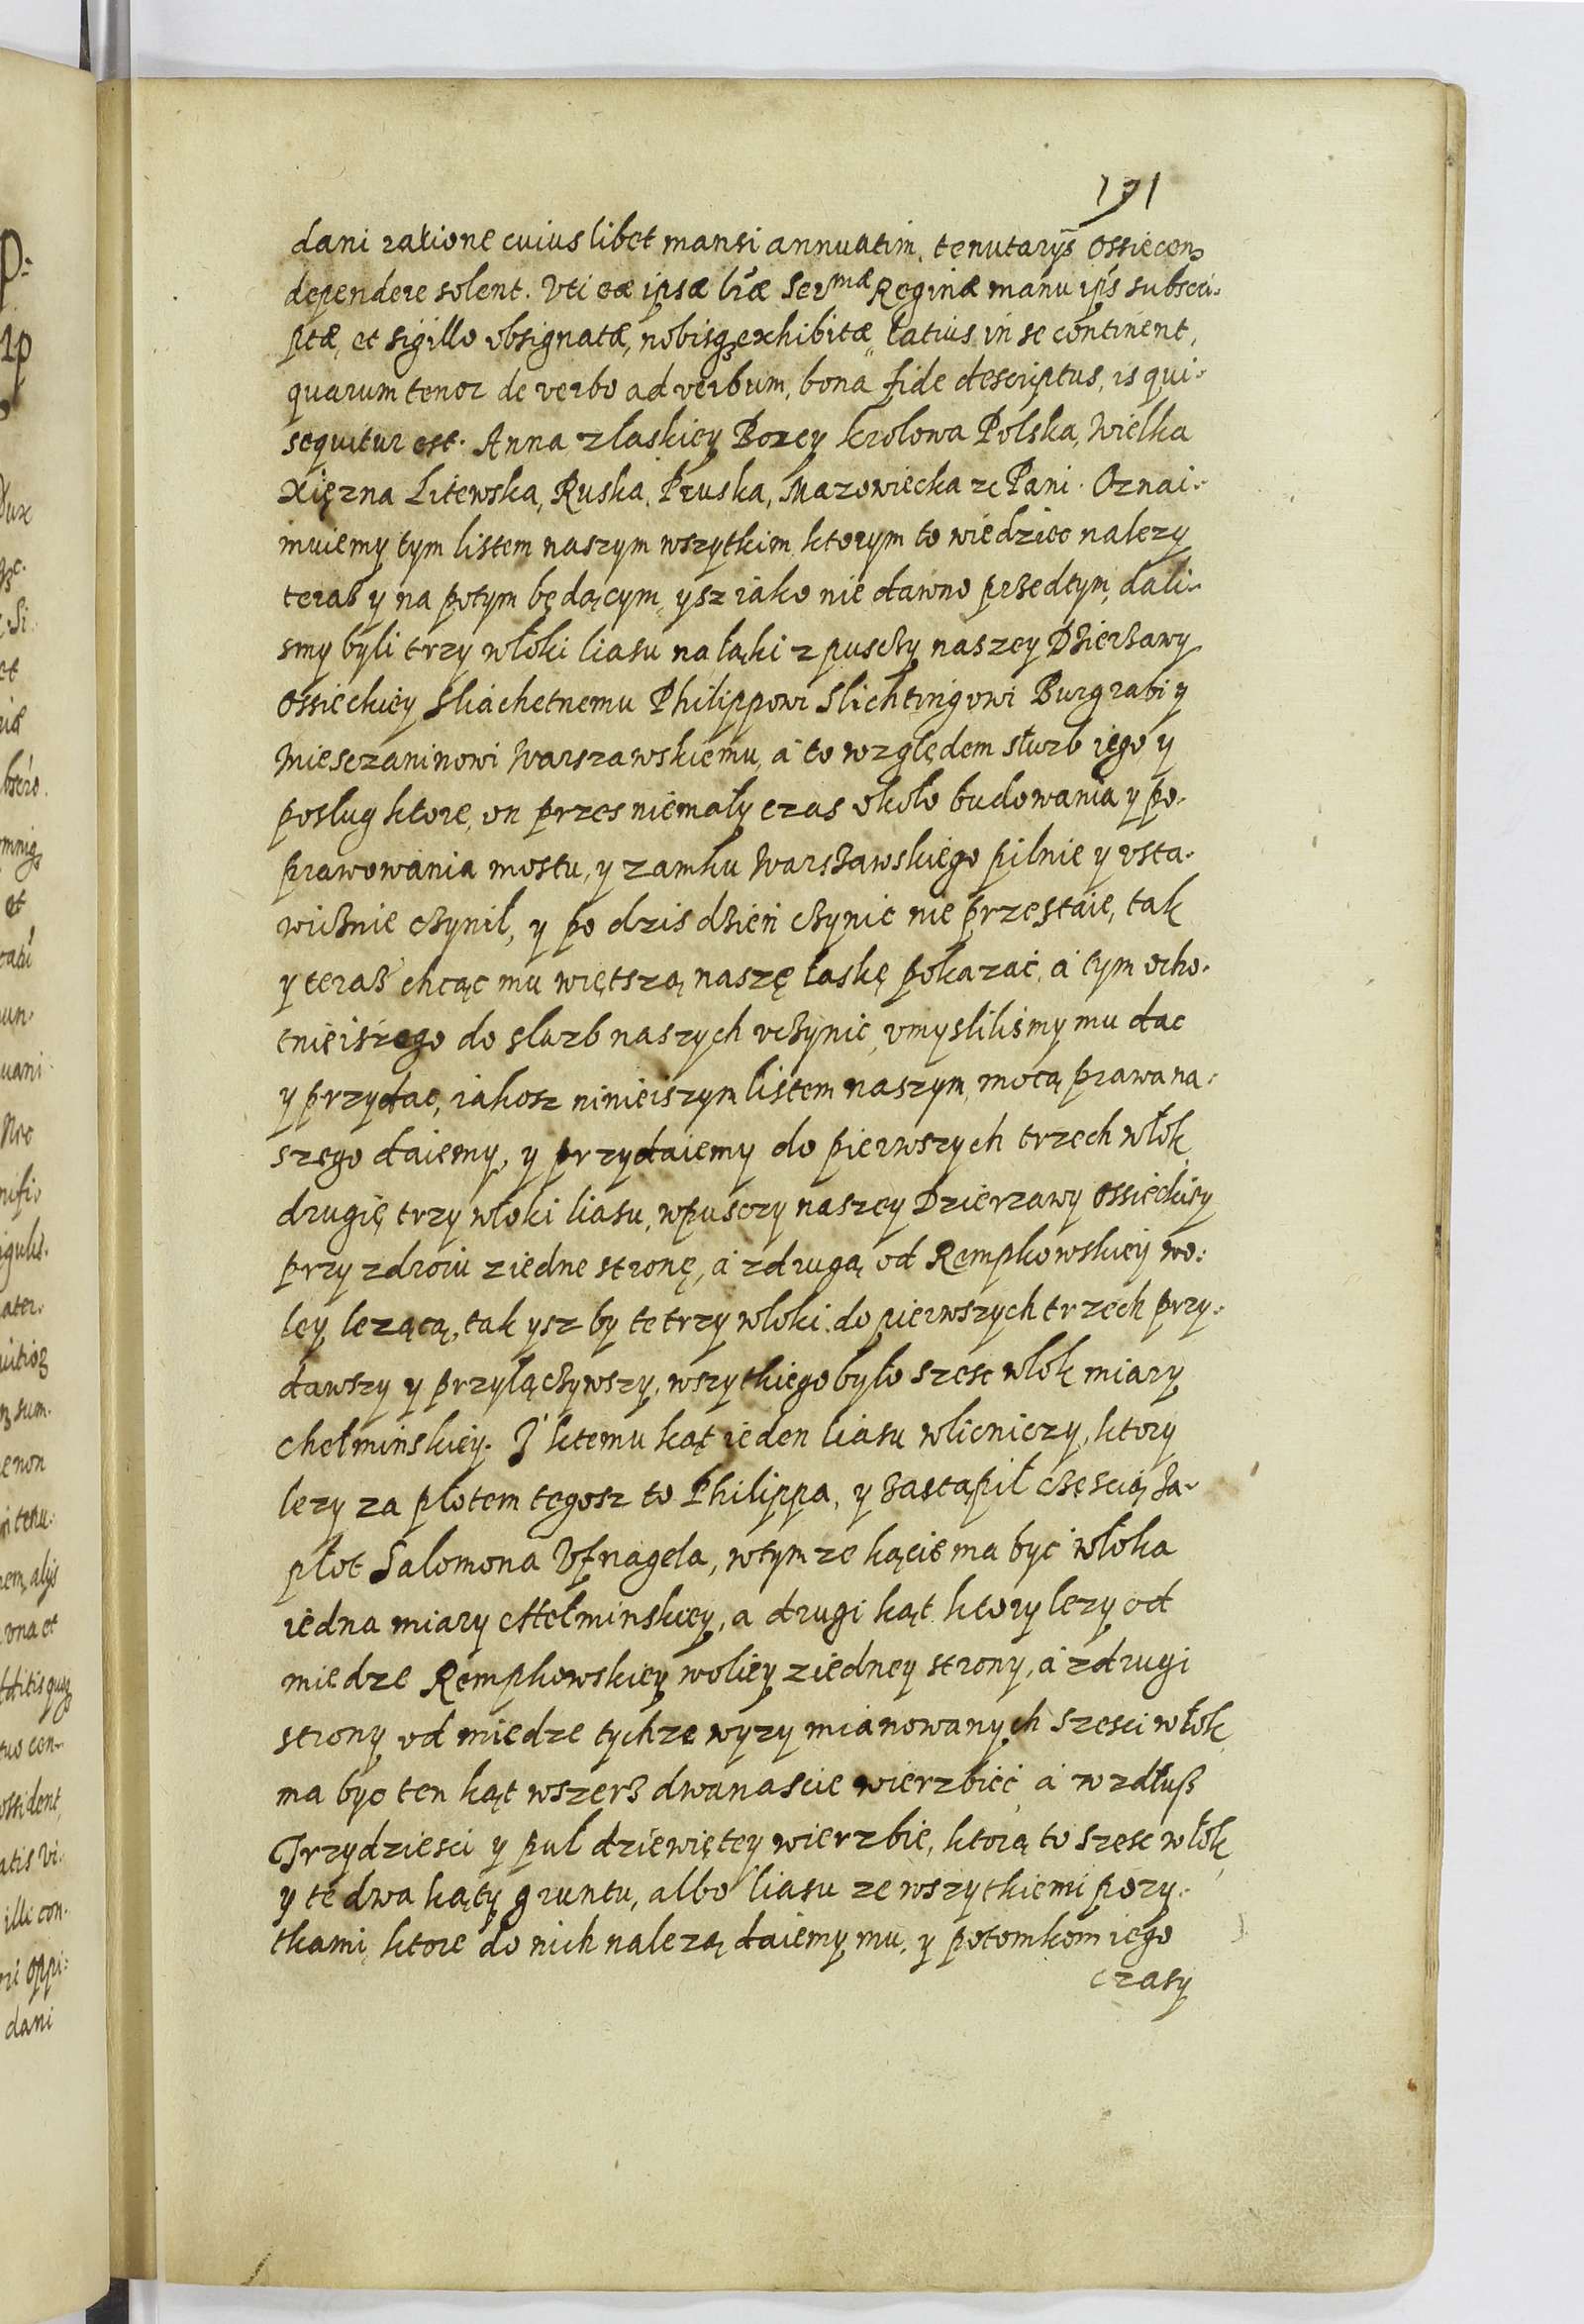 191
dani ratione cuius libet mansi annuatim, tenutarijs Ossiecen
dependere solent. Vti eæ ipsæ lræ Sermæ Reginæ manu ips subscri-
ptæ, et sigillo obsignatæ, nobisq exhibitæ, latius in se continent,
quarum tenor de verbo ad verbum, bona fide descriptus, is qui
sequitur est. Anna z laskiey Bozey krolowa Polska, Wielka
Xiężna Litewska, Ruska, Pruska, Mazowiecka zc Pani. Oznai-
muiemy tym listem naszym wszytkim ktorym to wiedziec nalezy
teraß y na potym będącym, ysz iako nie dawno przedtym, dali-
smy byli trzy włoki liasu na łąki z puszczy naszey Dzierzawy
Ossieckiey Sliachetnemu Philippowi Slichtingowi Burgrabi y
Miesczaninowi Warszawskiemu, a to względem słuzb iego y
poslug ktore, on przes niemały czas około budowania y po-
prawowania mostu, y zamku Warszawskiego pilnie y vsta-
wicznie czynił, y po dzis dzień czynic nie przestaie, tak
y teraß chcąc mu więtszą naszę łaskę pokazać, a tym ocho-
tnieiszego do sluzb naszych vczynic, vmyslilismy mu dac
y przydac, iakosz ninieiszym listem naszym, mocą prawa na-
szego daiemy, y przydaiemy do pierwszych trzech włok
drugię trzy włoki liasu, w pusczy naszey Dzierzawy Ossieckiey
przy zdroiu z iedne stronę, a z drugą od Rempkowskiey wo-
ley lezącą, tak ysz by te trzy wloki do pierwszych trzech przy-
dawszy y przyłączywszy, wszytkiego było szesc wlok miary
chełminskiey. I ktemu kąt ieden liasu wlicniczy, ktory
lezy za płotem tegosz to Philippa, y zastąpił częscią za-
płot Salomona Vfnagela, w tym ze kącie ma być włoka
iedna miary chełminskiey, a drugi kąt ktory lezy od
miedze Rempkowskiey woliey z iedney strony, a z drugi
strony od miedze tychze wyzy mianowanych szesci włok
ma byc ten kąt wszerz dwanascie wierzbiec, a wzdłuß
Trzydziesci y pul dziewiętey wierzbie, ktorą to szesc włok
y te dwa kąty gruntu, albo liasu ze wszytkiemi pozy-
tkami, ktore do nich nalezą daiemy mu, y potomkom iego
czasy